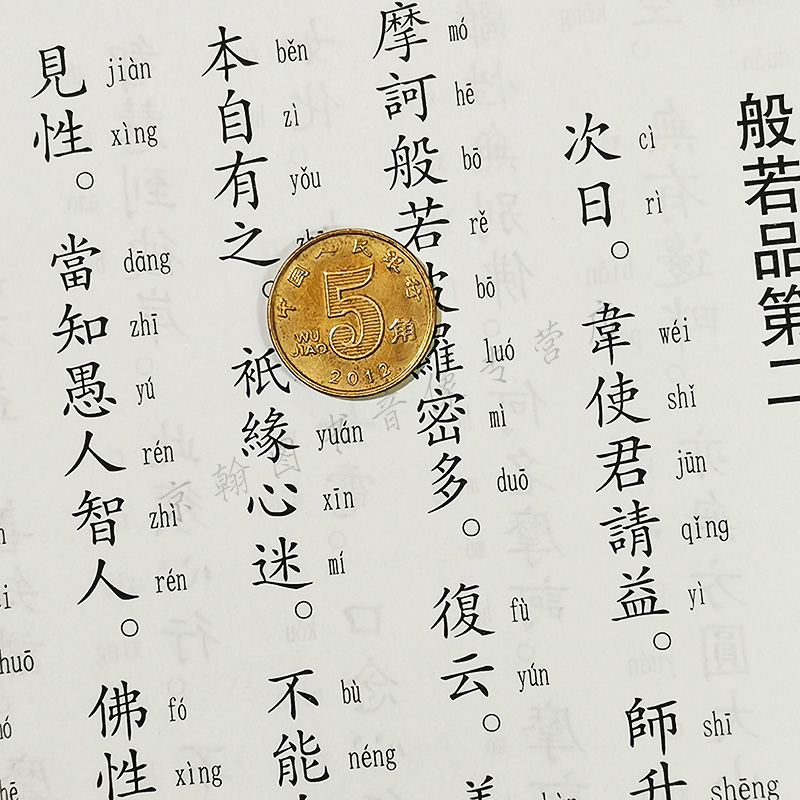 般若品第二
次日。韋使君請益。師升
cì rì wéi shǐ jūn qǐng yì shī shēng
摩訶般若波羅密多。復云。
mó hē bō rě bō luó mì duō fù yún
本自有之。祇緣心迷。不能
běn zì yǒu yuán xīn mí bù néng
見性。當知愚人智人。佛性
jiàn xìng dāng zhī yú rén zhì rén fó xìng
中国人民银行
5角
WU JIAO
2012
京翰图书音像专营